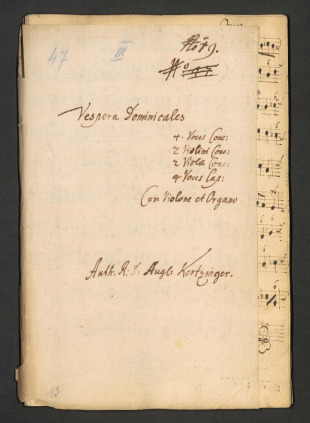 47 III No 79.
Vesperæ Dominicales
4. Voces Conc:
2 Violini Conc:
2 Violæ Conc:
4 Voces Cap:
Cum Violone et Organo
Auth. R: D: Augl: Kertzinger.
13